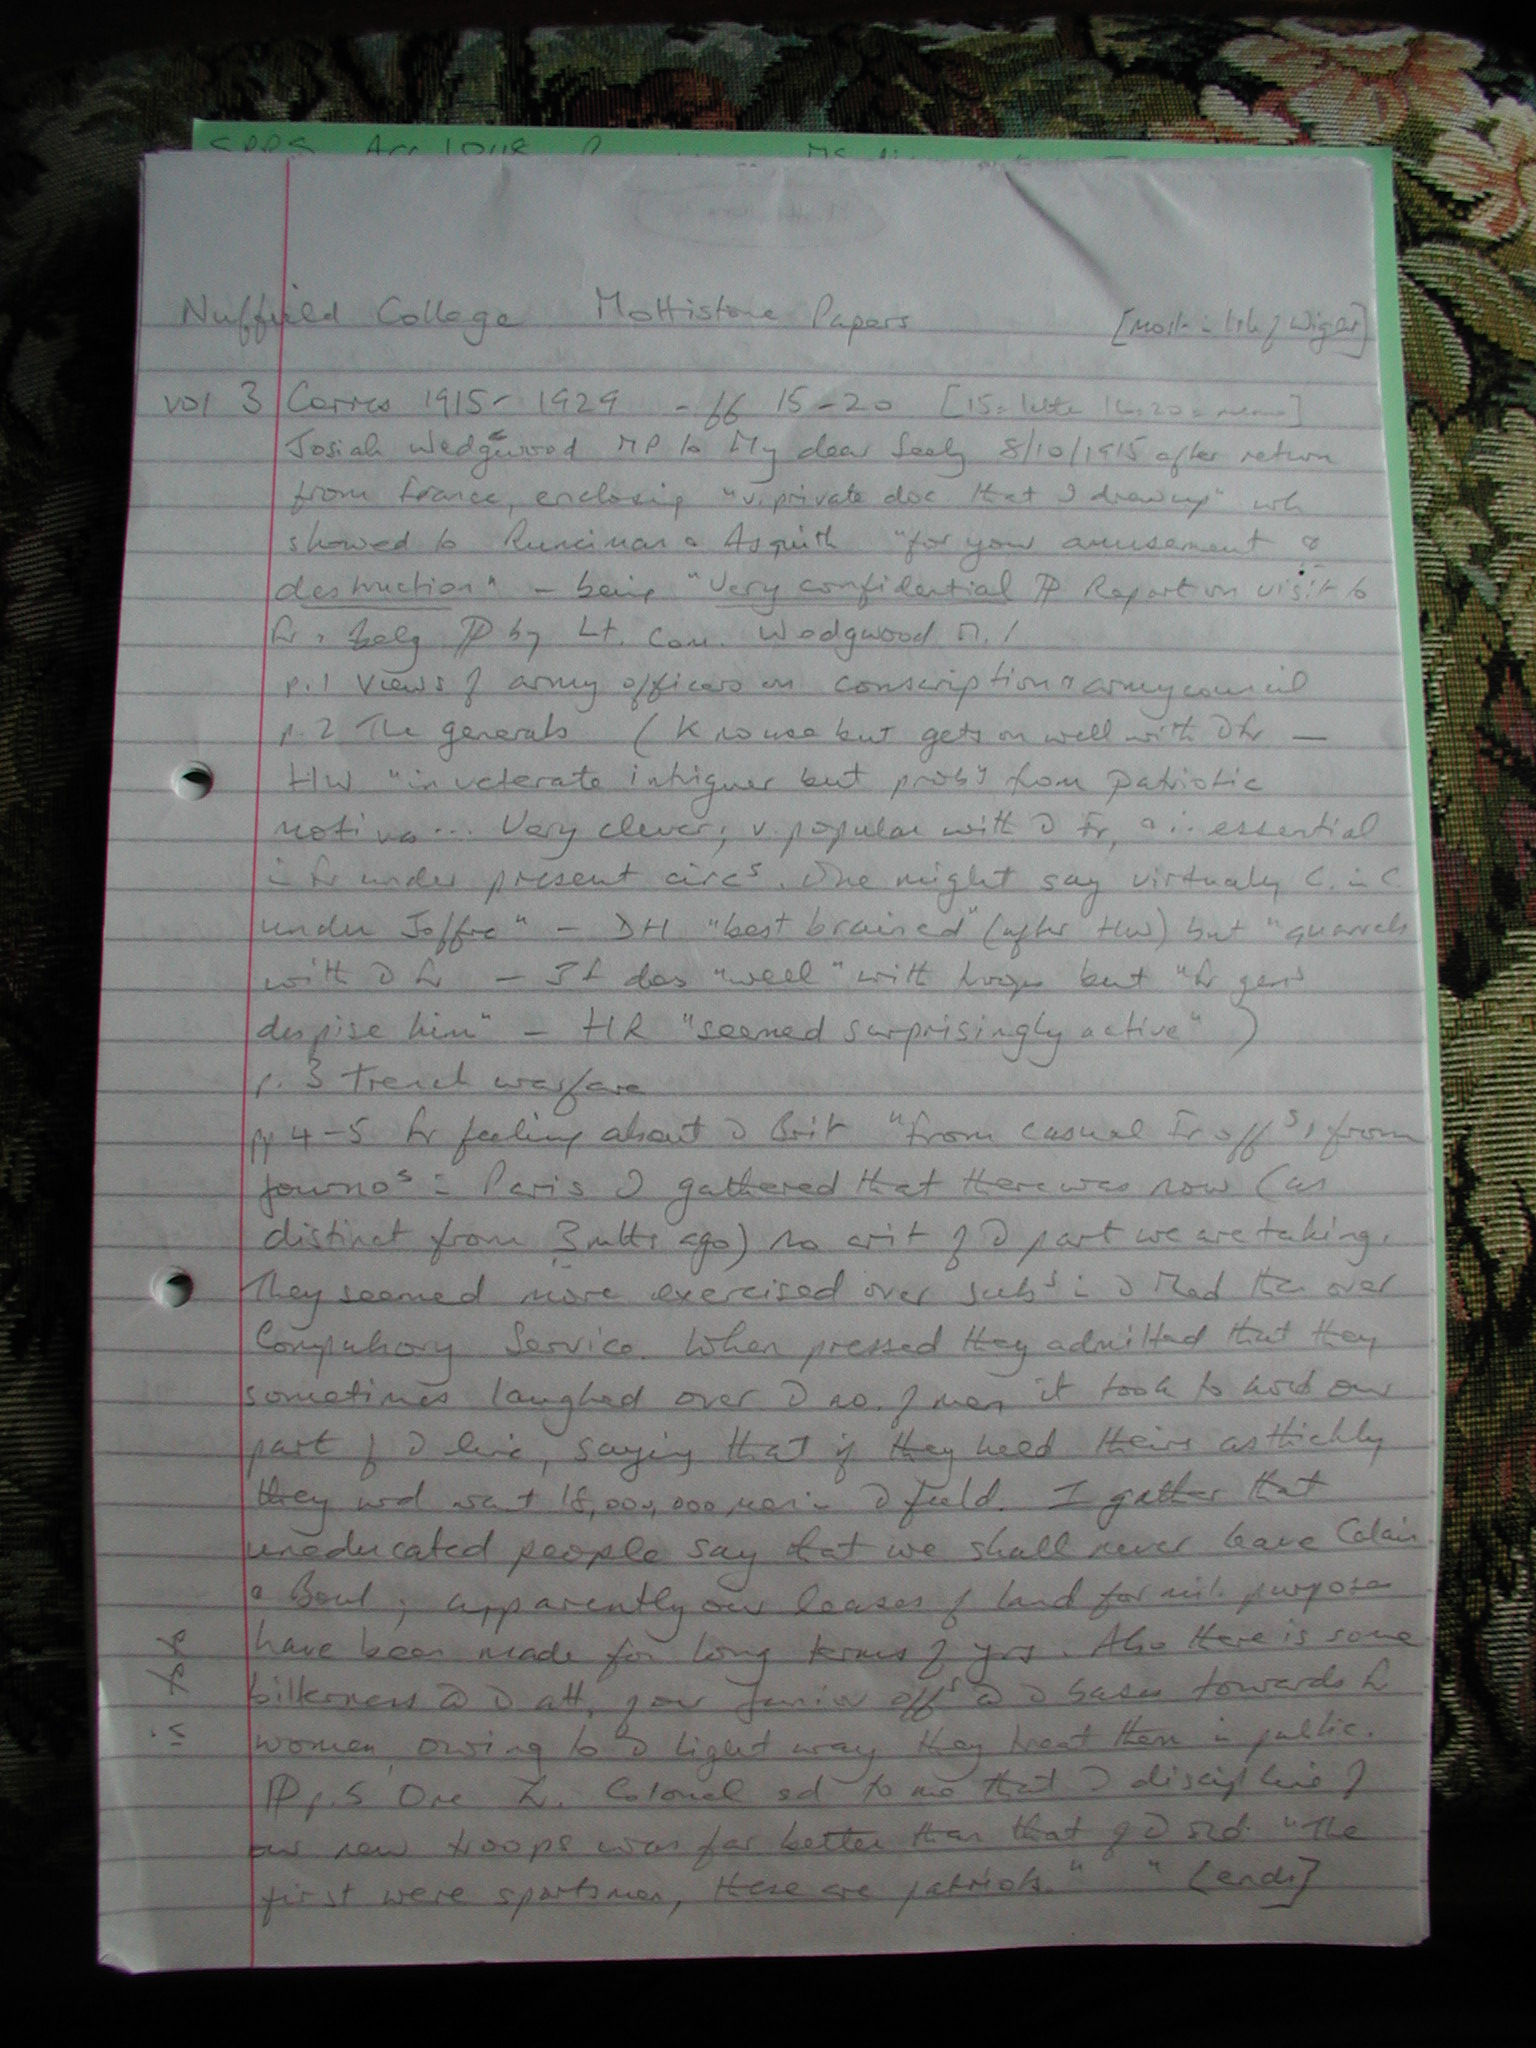 SPPS Acc 10118
Nuffield College Mottistone Papers [Most in Isle of Wight]
vol 3 Corres 1915-1929 - ff 15-20 [15 = letter 16-20 = memo]
Josiah Wedgewood MP to My dear Seely 8/10/1915 after return
from France, enclosing "v. private doc that I drew up" wh
showed to Runciman & Asquith "for your amusement &
destruction" - being "Very confidential PP Report on visit to
Fr & Belg PP by Lt. Com. Wedgwood M.P.
p.1 Views of army officers on conscription & army council
p.2 The generals (K no use but gets on well with D Fr —
HW "inveterate intriguer but probly from patriotic
motives... Very clever, v. popular with D Fr, & ∴ essential
in Fr under present circs. One might say virtually C. in C.
under Joffre" - DH "best brained" (after HW) but "quarrels
with D Fr - JF does "well" with troops but "Fr gens
despise him" - HR "seemed surprisingly active")
p. 3 Trench warfare
pp 4-5 Fr feeling about D Brit "From casual Fr offs, from
journos in Paris I gathered that there was now (as
distinct from 3 mths ago) no crit of D part we are taking.
They seemed more exercised over subs in D Med than over
Compulsory Service. When pressed they admitted that they
sometimes laughed over D no. of men it took to hold our
part of D line, saying that if they held theirs as thickly
they wd want 18,000,000 men in D field. I gather that
uneducated people say that we shall never leave Calais
& Boul; apparently our leases of land for mil. purposes
have been made for long terms of yrs. Also there is some
bitterness @ D att. of our junior offs @ D bases towards Fr
women, owing to D light way they treat them in public.
PP p.5 One Fr. Colonel sd to me that D discipline of
our new troops was far better than that of D old. "The
first were sportsmen, these are patriots." " [ends]